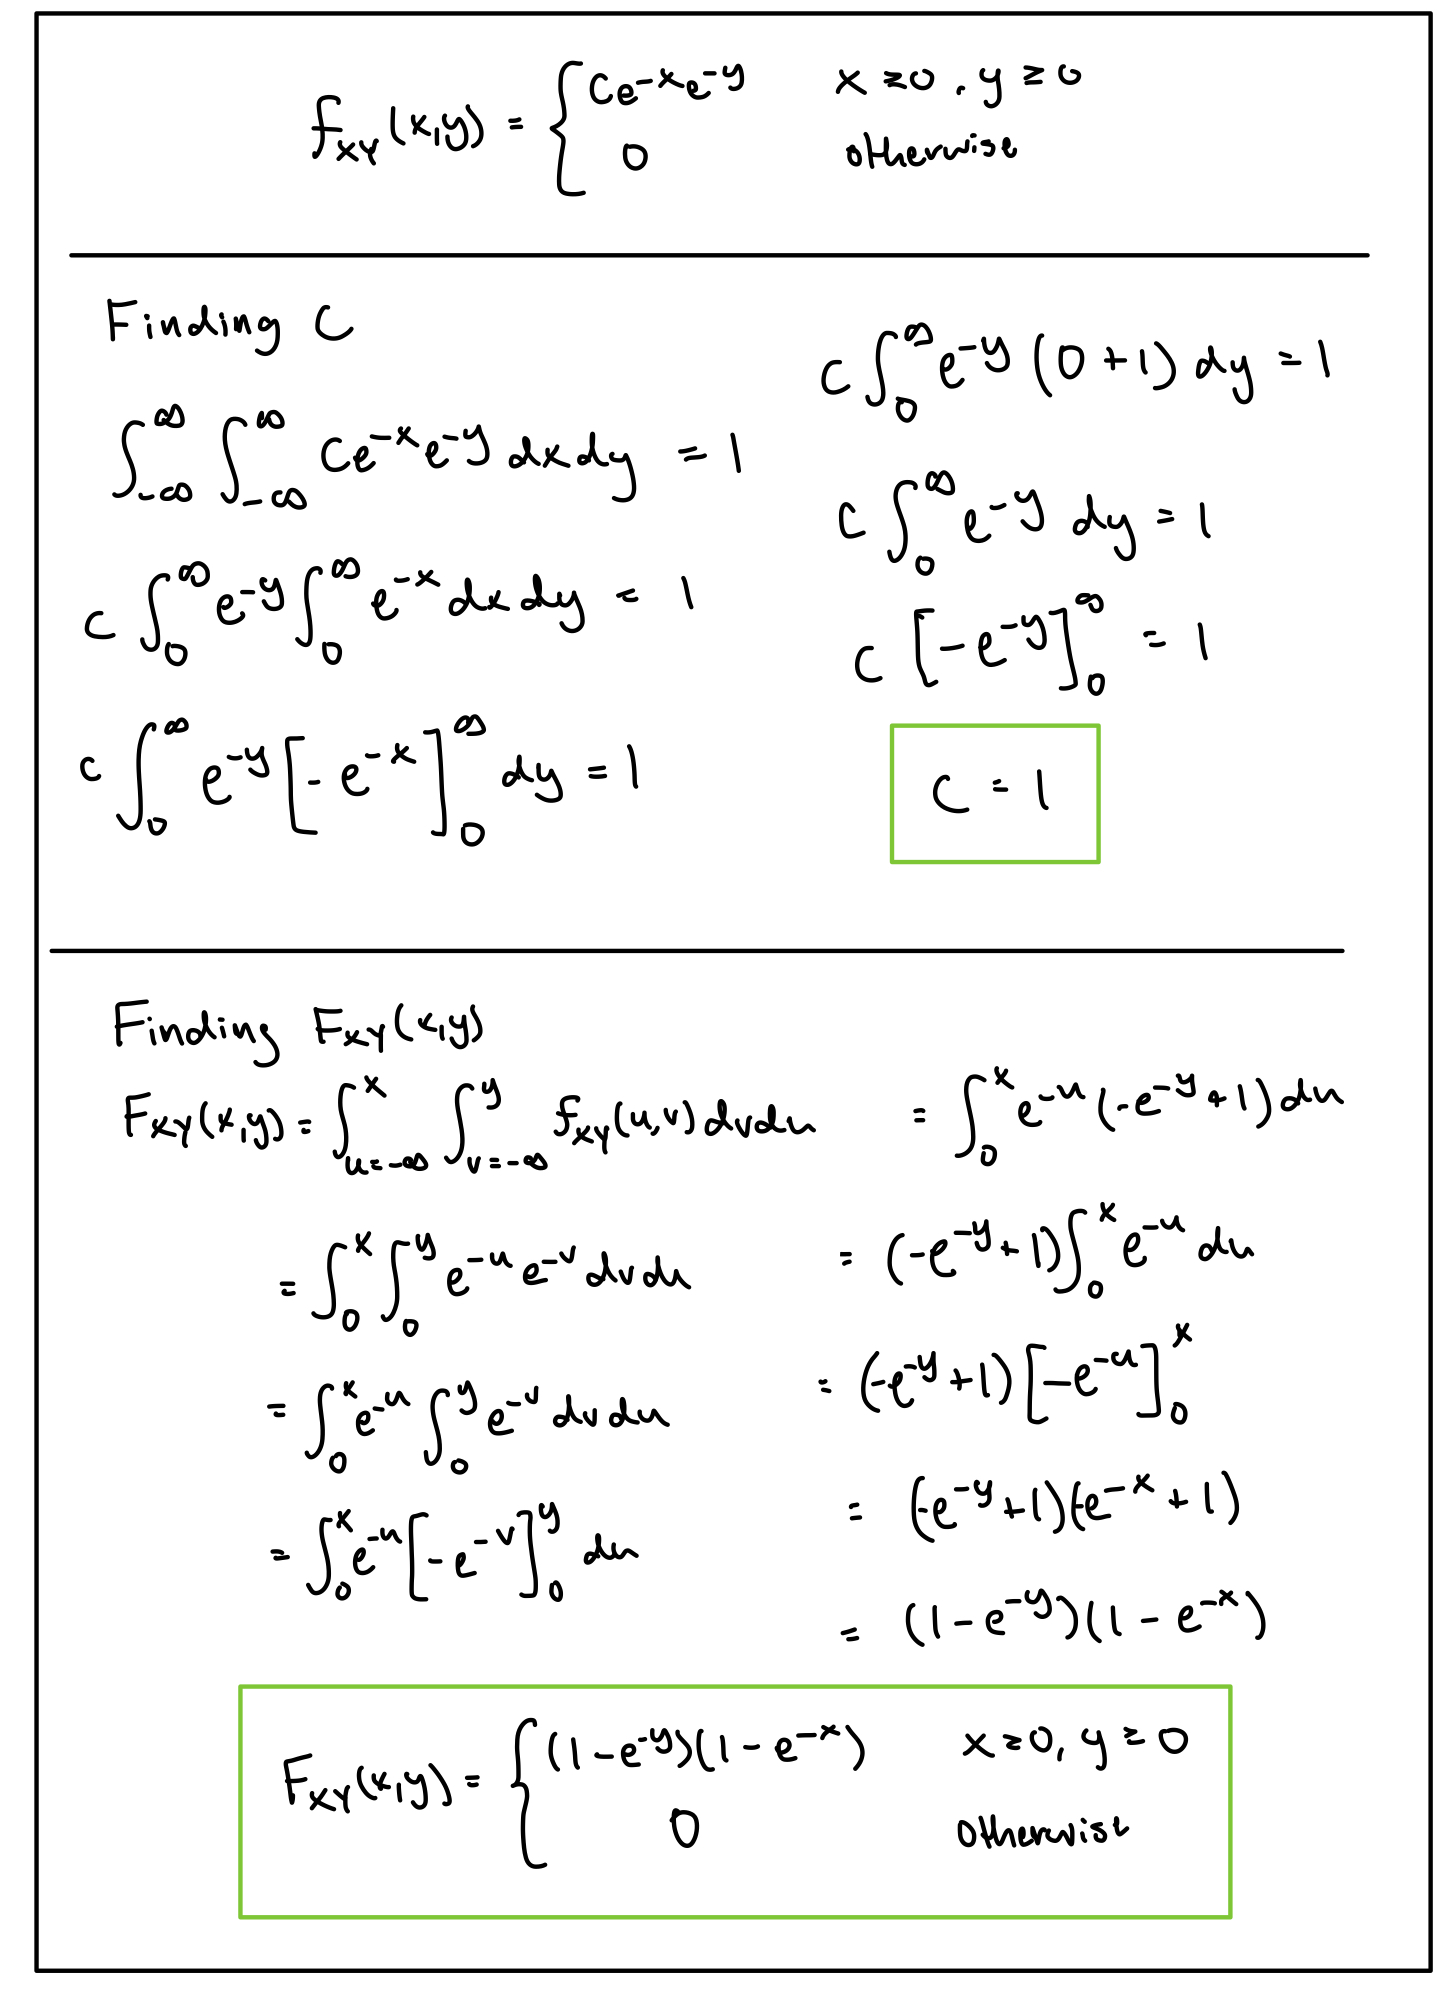 f_{XY}(x,y) = { Ce^{-x}e^{-y}   x ≥ 0, y ≥ 0
0   otherwise
Finding C
∫_{-∞}^{∞} ∫_{-∞}^{∞} Ce^{-x}e^{-y} dxdy = 1
C ∫_0^∞ e^{-y} ∫_0^∞ e^{-x} dx dy = 1
C ∫_0^∞ e^{-y} [-e^{-x}]_0^∞ dy = 1
C ∫_0^∞ e^{-y} (0+1) dy = 1
C ∫_0^∞ e^{-y} dy = 1
C [-e^{-y}]_0^∞ = 1
C = 1
Finding F_{XY}(x,y)
F_{XY}(x,y) = ∫_{u=-∞}^x ∫_{v=-∞}^y f_{XY}(u,v) dvdu
= ∫_0^x ∫_0^y e^{-u} e^{-v} dvdu
= ∫_0^x e^{-u} ∫_0^y e^{-v} dvdu
= ∫_0^x e^{-u} [-e^{-v}]_0^y du
= ∫_0^x e^{-u} (-e^{-y}+1) du
= (-e^{-y}+1) ∫_0^x e^{-u} du
= (-e^{-y}+1) [-e^{-u}]_0^x
= (-e^{-y}+1)(-e^{-x}+1)
= (1-e^{-y})(1-e^{-x})
F_{XY}(x,y) = { (1-e^{-y})(1-e^{-x})   x ≥ 0, y ≥ 0
0   otherwise